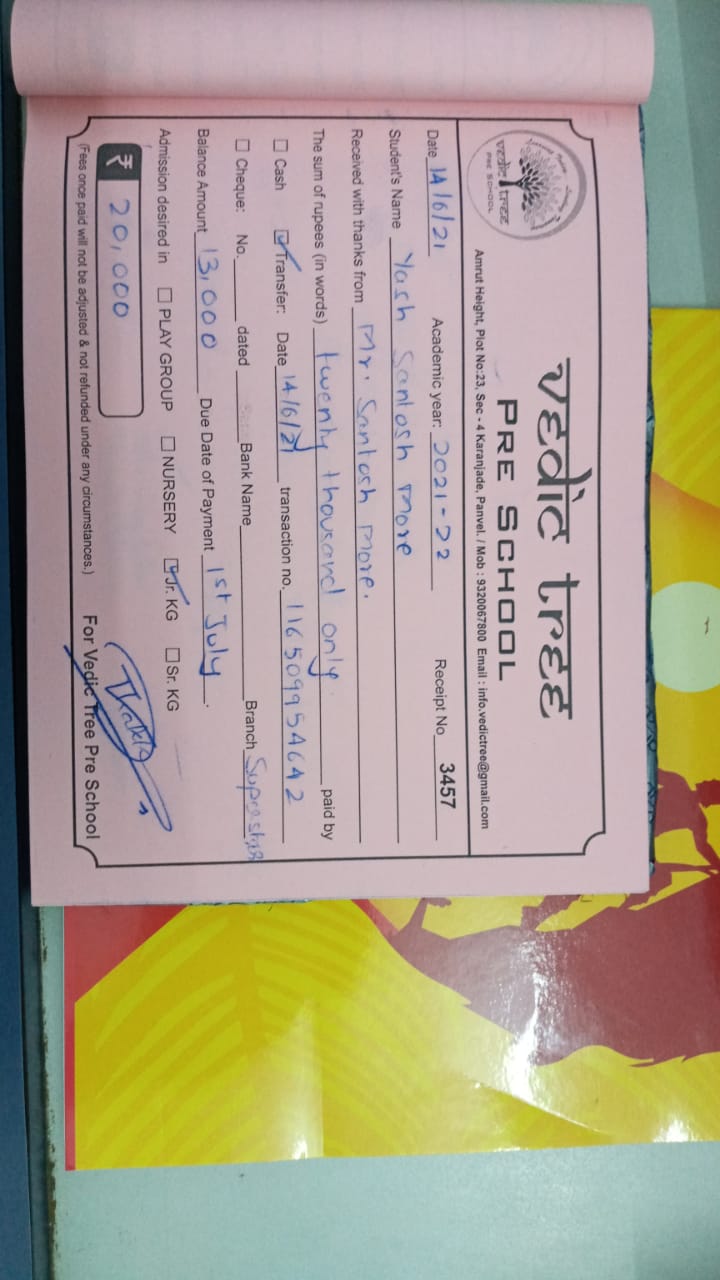 vedic tree
PRE SCHOOL
vedic tree
PRE SCHOOL
Amrut Height, Plot No:23, Sec - 4 Karanjade, Panvel. / Mob : 9320067800 Email : info.vedictree@gmail.com
Date 14/6/21 Academic year: 2021-22 Receipt No 3457
Student's Name Yash Santosh more
Received with thanks from Mr. Santosh more.
The sum of rupees (in words) twenty thousand only. paid by
☐ Cash ☑ Transfer: Date 14/6/21 transaction no. 116509954642
☐ Cheque: No. dated Bank Name Branch
Balance Amount 13,000 Due Date of Payment 1st July.
Admission desired in ☐ PLAY GROUP ☐ NURSERY ☑ Jr. KG ☐ Sr. KG
₹ 20,000
(Fees once paid will not be adjusted & not refunded under any circumstances.) For Vedic Tree Pre School